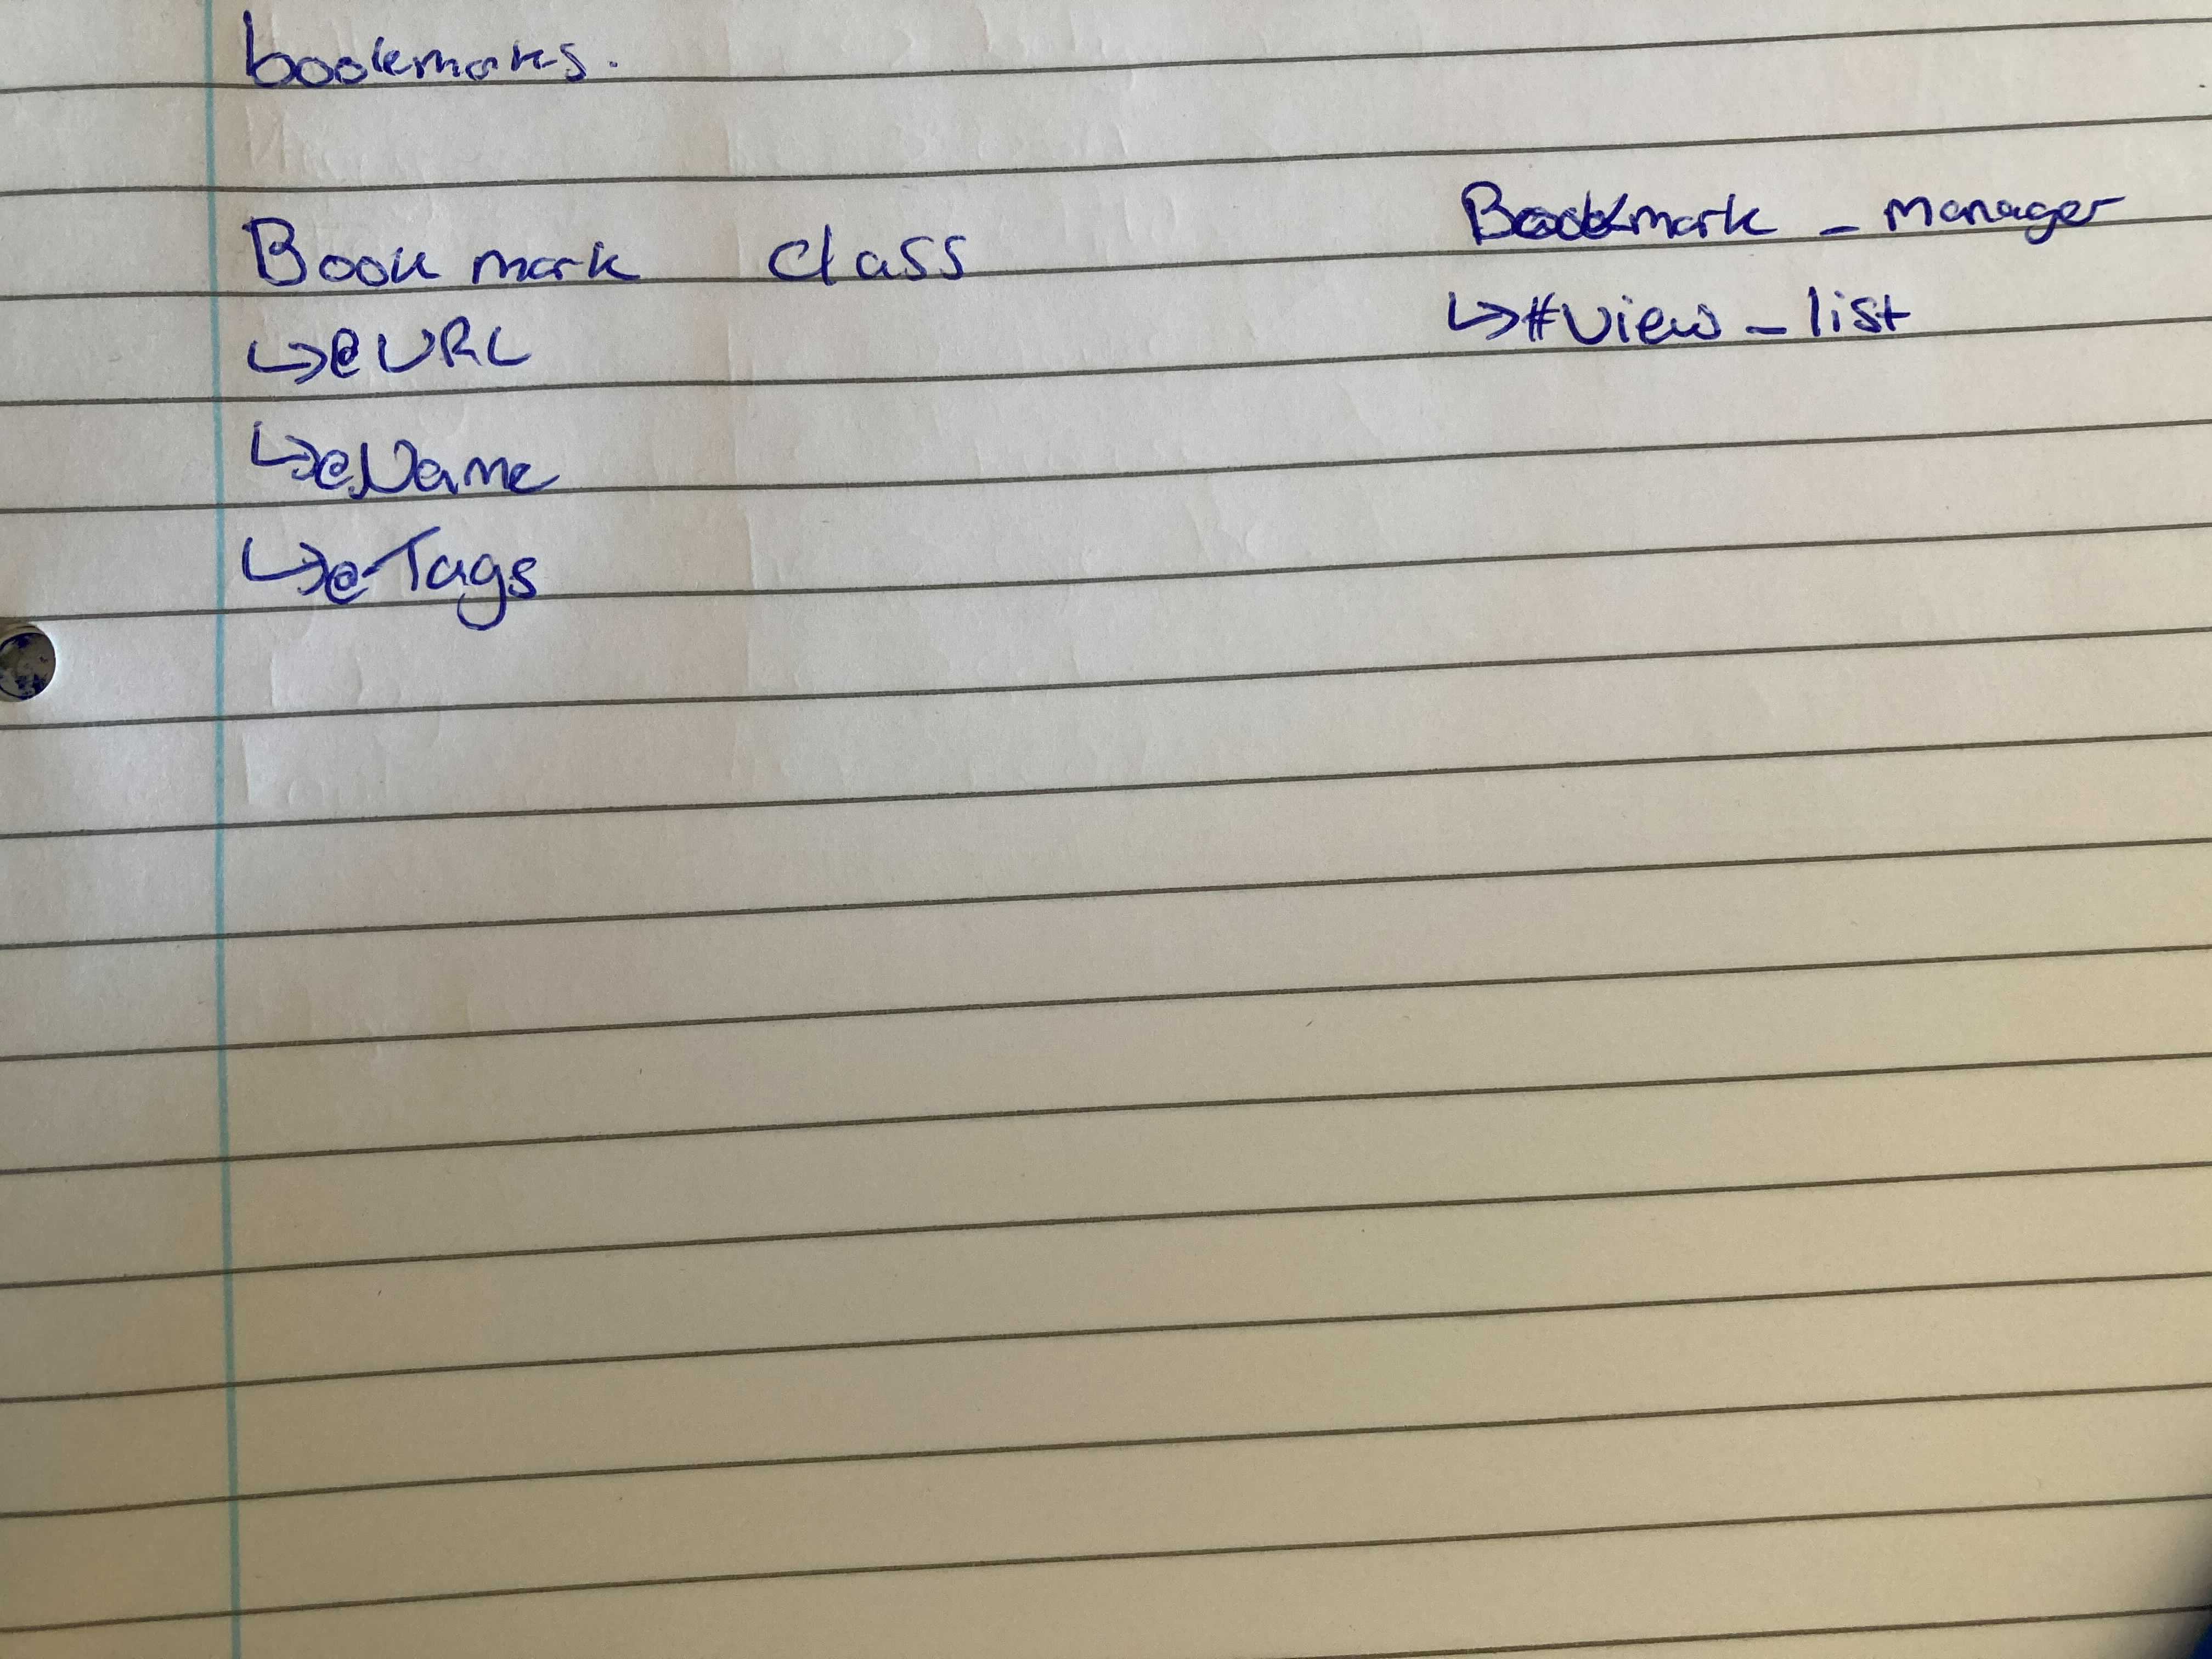 bookmarks.
Bookmark class
↳@URL
↳@Name
↳@Tags
Bookmark_manager
↳#view_list